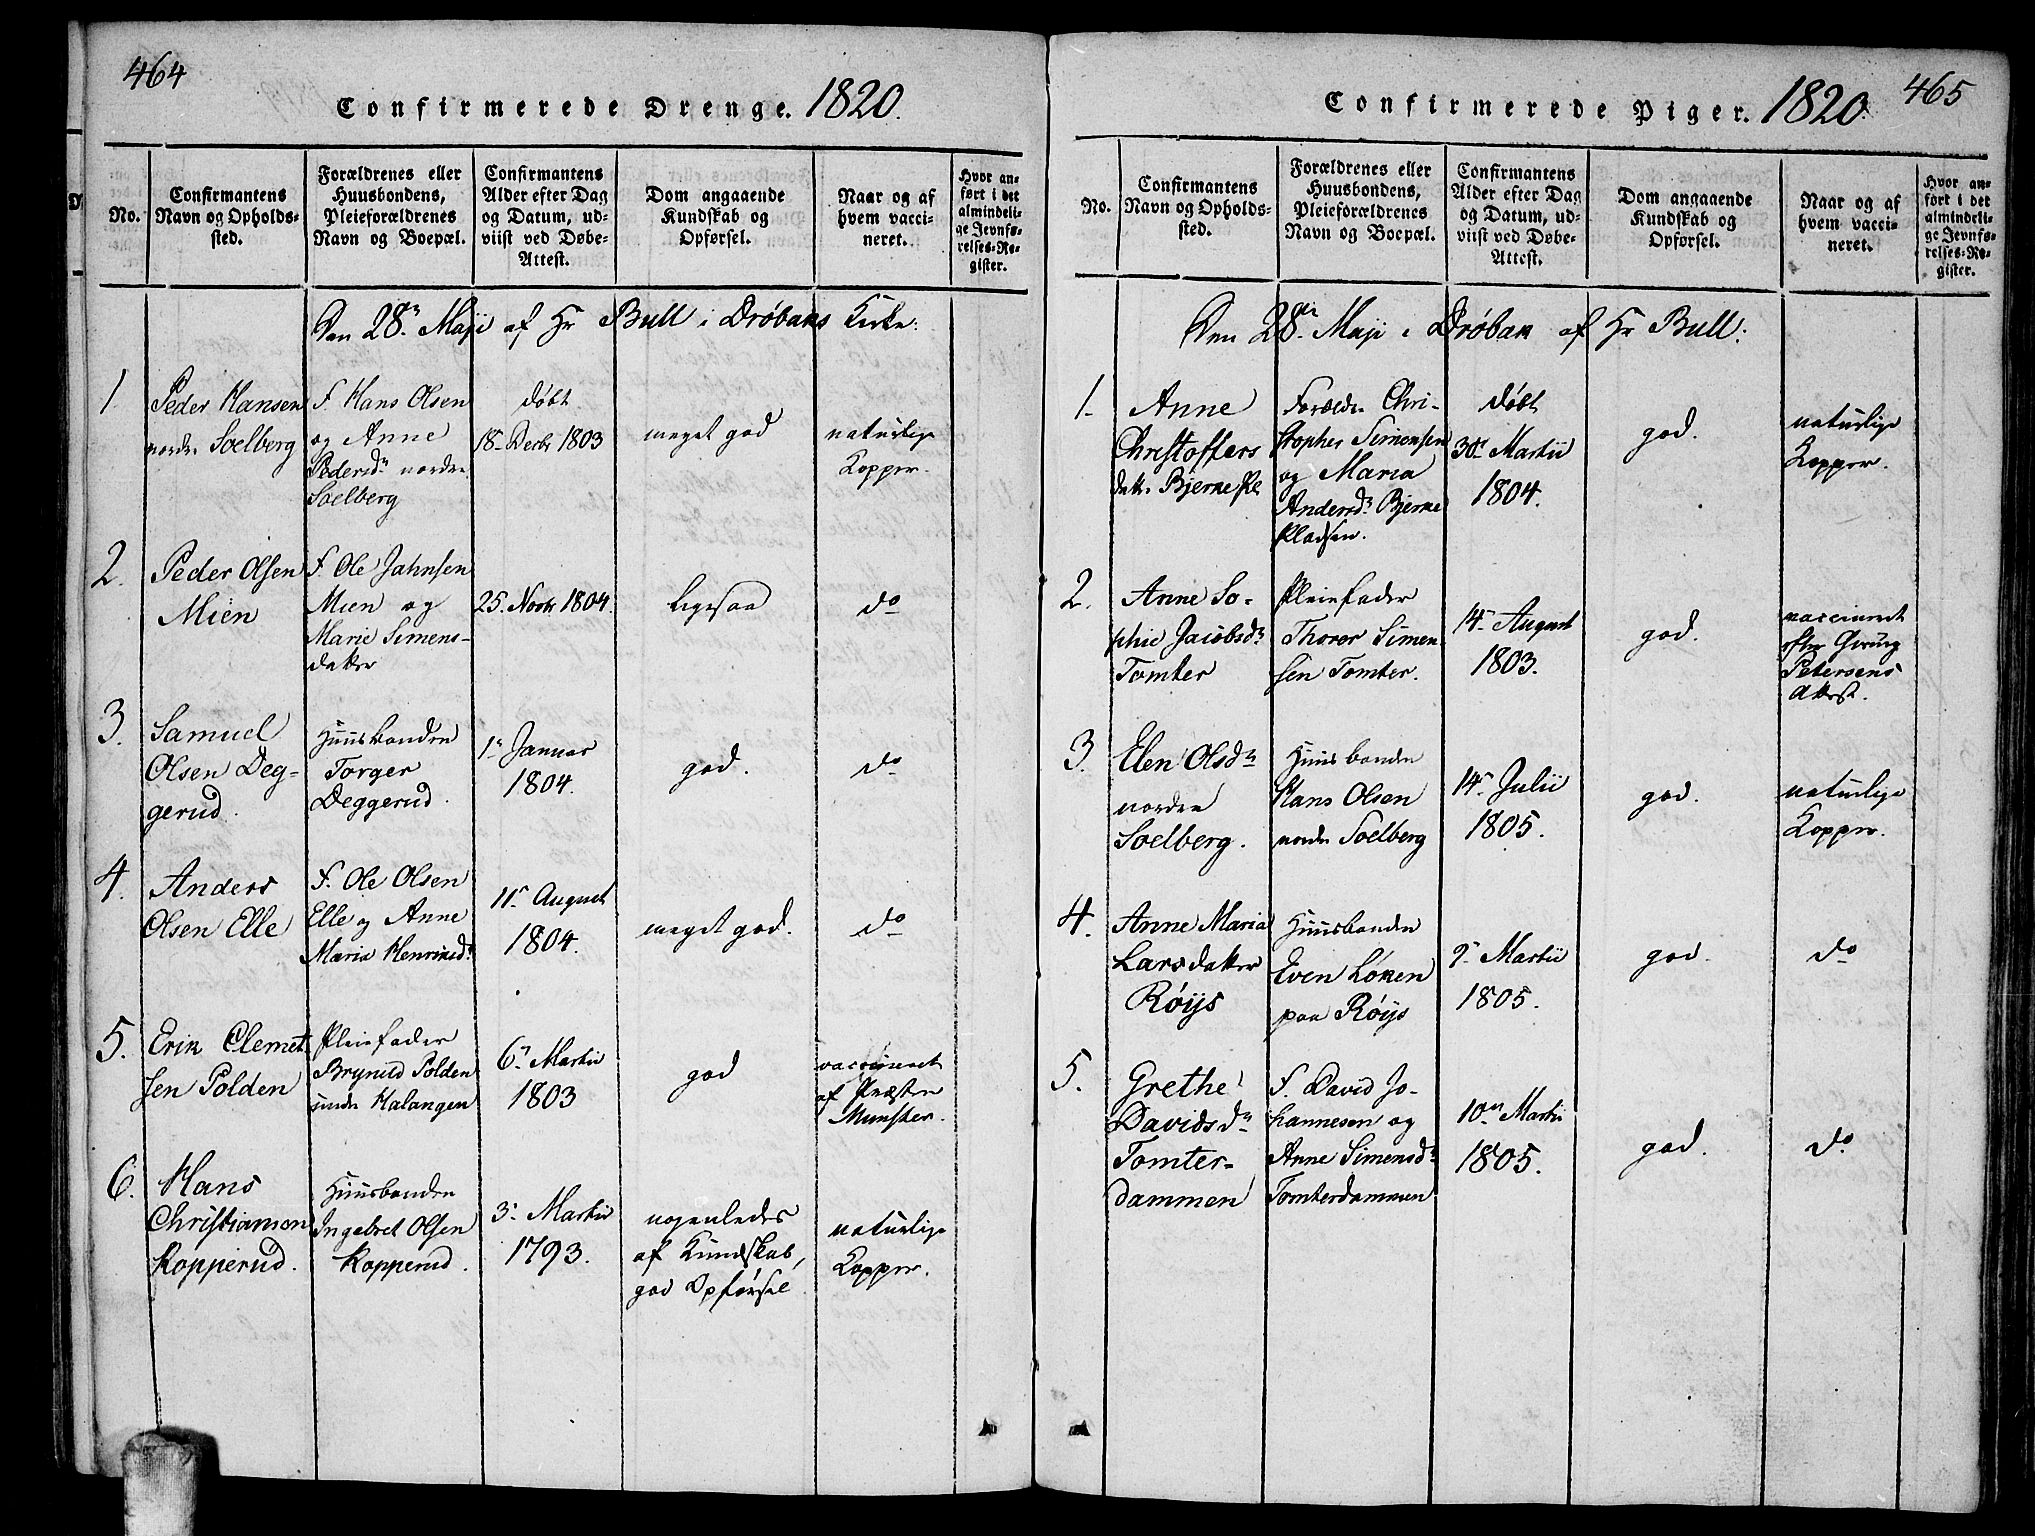 464
Confirmerede Drenge. 1820.
No.
Confirmantens
Navn og Opholds-
sted.
Forældrenes eller
Huusbondens,
Pleieforældrenes
Navn og Boepæl.
Confirmantens
Alder efter Dag
og Datum, ud-
viist ved Døbe-
Attest.
Dom angaaende
Kundskab og
Opførsel.
Naar og af
hvem vacci-
neret.
Hvor an-
ført i det
almindeli-
ge Jevnfø-
relses-Re-
gister.
Den 28n Maji af Hr Bull i Drøbaks Kirke:
1.
Peder Hansen
nordre Soelberg
F. Hans Olsen
og Anne
Pedersdr nordre
Soelberg
døbt
18 Decbr 1803
meget god
naturlige
Kopper.
2.
Peder Olsen
Mien
F. Ole Jahnsen
Mien og
Marie Simens-
datter
25. Novbr 1804
ligesaa
do
3.
Samuel
Olsen Deg-
gerud.
Huusbonden
Torger
Deggerud.
1n Januar
1804.
god.
do
4.
Anders
Olsen Elle
F. Ole Olsen
Elle og Anne
Maria Henriksdr
11n August
1804.
meget god.
do
5.
Erik Clemet
sen Polden
Pleiefader
Brynild Polden
søndre Halangen
6n Martii
1803
god
vaccineret
af Præsten
Munster.
6.
Hans
Christiansen
Kopperud.
Huusbonden
Ingebret Olsen
Kopperud.
3n Martii
1793.
nogenledes
af Kundskab,
god Opførsel
naturlige
Kopper.
465
Confirmerede Piger. 1820.
No.
Confirmantens
Navn og Opholds-
sted.
Forældrenes eller
Huusbondens,
Pleieforældrenes
Navn og Boepæl.
Confirmantens
Alder efter Dag
og Datum, ud-
viist ved Døbe-
Attest.
Dom angaaende
Kundskab og
Opførsel.
Naar og af
hvem vacci-
neret.
Hvor an-
ført i det
almindeli-
ge Jevnfø-
relses-Re-
gister.
Den 28de Maji i Drøbak af Hr Bull:
1.
Anne
Christoffers
datr Bjerke Pl.
Forældr Chri-
stopher Simensen
og Maria
Andersdr Bjerke
Pladsen.
døbt
30n Martii
1804.
god.
naturlige
Kopper.
2.
Anne So-
phie Jacobsdr
Tomter
Pleiefader
Thorer Simen
sen Tomter.
14n August
1803.
god.
vaccineret
efter
Petersens
Attest.
3.
Elen Olsdr
nordre
Soelberg.
Huusbonden
Hans Olsen
nordre Soelberg
14n Julii
1805.
god.
naturlige
Kopper.
4.
Anne Maria
Larsdatter
Røijs
Huusbonden
Even Løken
paa Røijs
9n Martii
1805.
god.
do
5.
Grethe
Davidsdr
Tomter-
dammen
F. David Jo-
hannesen og
Anne Simensdr
Tomterdammen
10n Martii
1805.
god.
do